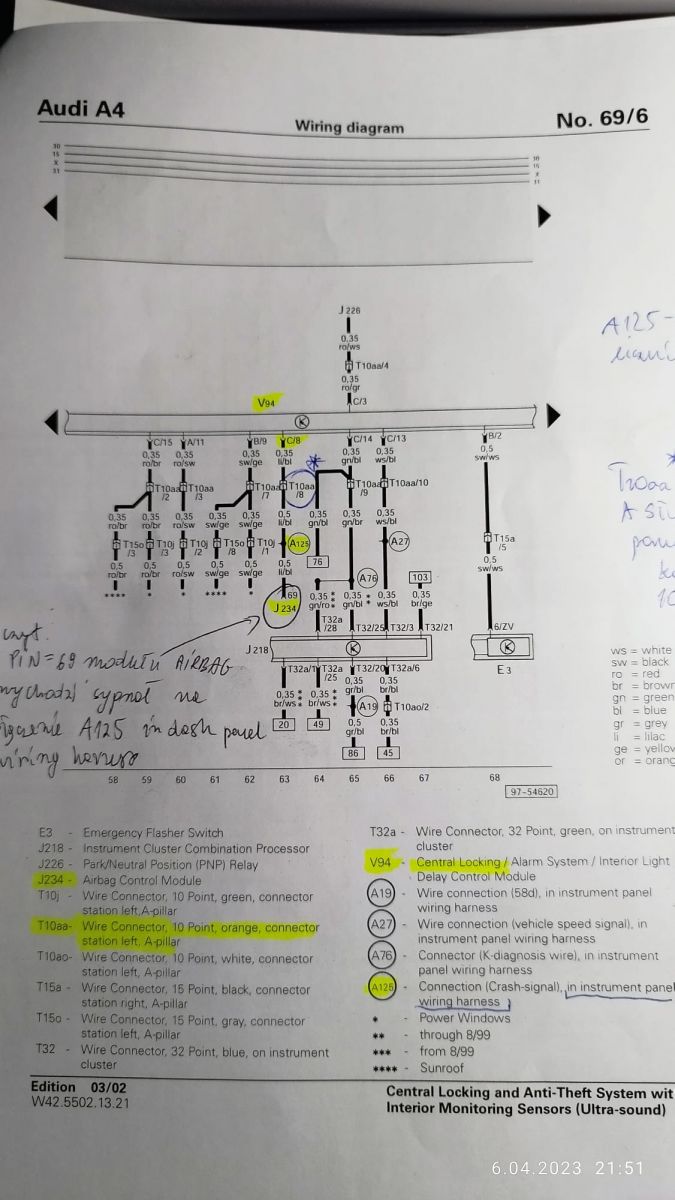 Audi A4
Wiring diagram
No. 69/6
30
15
X
31
30
15
X
31
J 226
0,35
ro/ws
T10aa/4
0,35
ro/gr
C/3
V94
K
C/15
A/11
B/9
C/8
C/14
C/13
B/2
0,35
ro/br
0,35
ro/sw
0,35
sw/ge
0,35
li/bl
0,35
gn/bl
0,35
ws/bl
0,5
sw/ws
T10aa
/2
T10aa
/3
T10aa
/7
T10aa
/8
T10aa
/9
T10aa/10
0,35
ro/br
0,35
ro/br
0,35
ro/sw
0,35
sw/ge
0,35
sw/ge
0,5
li/bl
0,35
gn/bl
0,35
gn/br
0,35
ws/bl
T15o
/3
T10j
/3
T10j
/2
T15o
/8
T10j
/1
A125
A27
T15a
/5
0,5
ro/br
0,5
ro/br
0,5
ro/sw
0,5
sw/ge
0,5
sw/ge
0,5
li/bl
76
A76
103
0,5
sw/ws
****
*
*
****
*
69
J 234
0,35
gn/ro
0,35
gn/bl
0,35
ws/bl
0,35
br/ge
T32a
/28
T32/25
T32/3
T32/21
6/ZV
J 218
K
K
E 3
T32a/1
T32a
/25
T32/20
T32a/6
0,35
br/ws
0,35
br/ws
0,35
gr/bl
0,35
br/bl
A19
T10ao/2
0,5
gr/bl
0,35
br/bl
20
49
86
45
58 59 60 61 62 63 64 65 66 67 68
97-54620
A125 -
*
T10aa
PiN=69 modułu AIRBAG
wychodzi sygnał na
A125 in dash panel
wiring harness
ws = white
sw = black
ro = red
br = brown
gn = green
bl = blue
gr = grey
li = lilac
ge = yellow
or = orang
E3 - Emergency Flasher Switch
J218 - Instrument Cluster Combination Processor
J226 - Park/Neutral Position (PNP) Relay
J234 - Airbag Control Module
T10j - Wire Connector, 10 Point, green, connector
station left,A-pillar
T10aa- Wire Connector, 10 Point, orange, connector
station left, A-pillar
T10ao- Wire Connector, 10 Point, white, connector
station left, A-pillar
T15a - Wire Connector, 15 Point, black, connector
station right, A-pillar
T15o - Wire Connector, 15 Point, gray, connector
station left, A-pillar
T32 - Wire Connector, 32 Point, blue, on instrument
cluster
T32a - Wire Connector, 32 Point, green, on instrument
cluster
V94 - Central Locking / Alarm System / Interior Light
Delay Control Module
A19 - Wire connection (58d), in instrument panel
wiring harness
A27 - Wire connection (vehicle speed signal), in
instrument panel wiring harness
A76 - Connector (K-diagnosis wire), in instrument
panel wiring harness
A125 - Connection (Crash-signal), in instrument panel
wiring harness
* - Power Windows
** - through 8/99
*** - from 8/99
**** - Sunroof
Edition 03/02
W42.5502.13.21
Central Locking and Anti-Theft System wit
Interior Monitoring Sensors (Ultra-sound)
6.04.2023 21:51